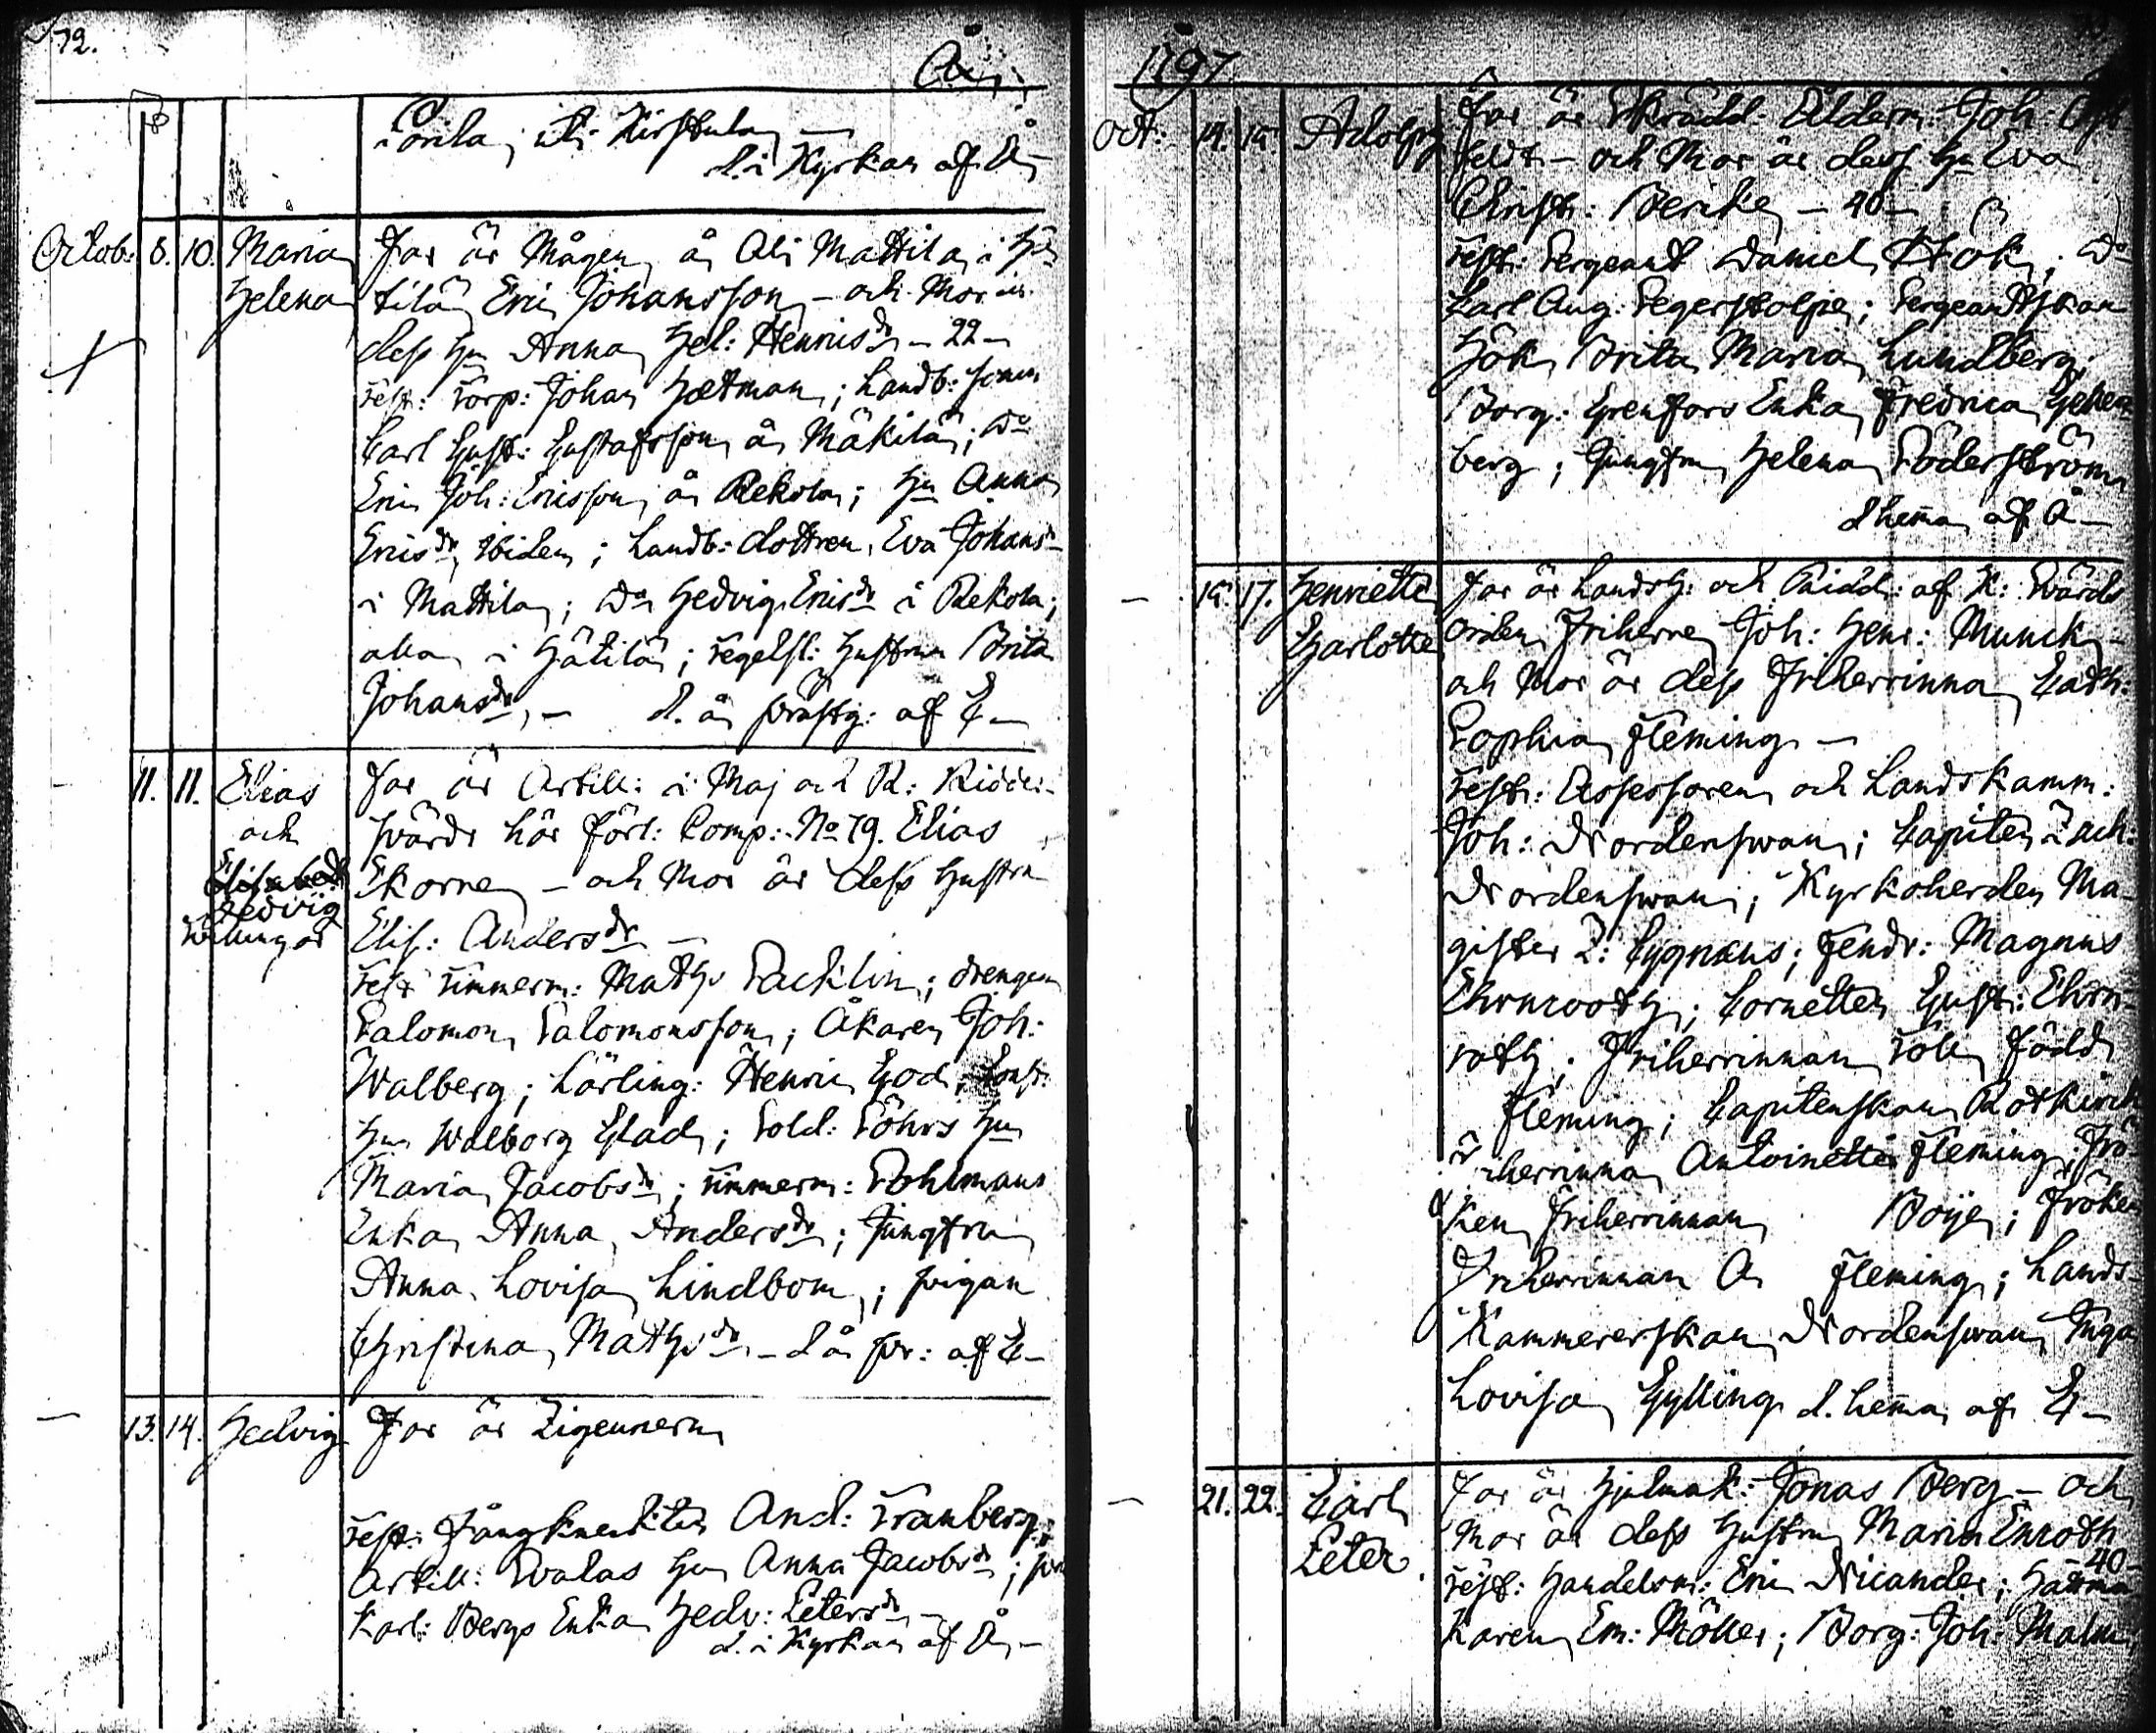 72.
År
i Kirstula
d. i Kyrkan af Å
Octob: 8. 10. Maria Far är Mågen å Ali Mattila i
Helena tilä Eric Johansson - och Mor är
dess Hu Anna Hel: Henricsdr - 22 -
Test: Torp: Johan ; Landb: sonen
Carl Gust: Gustafsson å Mäkilä; Do
Eric Joh: Ericsson å Rekola; Hu Anna
Ericsdr, ibidem; Landb: dottren, Eva Johansdr
i Mattila; Do Hedvig Ericsdr i Rekola;
allan i Hätilä; Tegelsl: Hustrun Brita
Johansdr, - d. å prästg: af C -
11. 11. Elias Far är Artill: i Maj och R:
och svärds här förl: Comp: No 79. Elias
Elisabeth Ekorre - och Mor är dess Hustru
Hedvig
Tvillingar Elis: Andersdr -
Test Timmerm: Maths Packlin; drengen
Salomon Salomonsson; Åkaren Joh:
Walberg; Lärling: Henric God;
Hu Walborg Glad; Sold: Söhrs Hu
Maria Jacobsdr; Timmerm: Pohlmans
Enka Anna Andersdr; Jungfru
Anna Lovisa Lindbom; pigan
Christina Mathsdr - d å pr: af C -
13. 14. Hedvig Far är Zigeunern
Test: Fångknekten And: Tranberg;
Artill: Svalas Hu Anna Jacobsdr;
Karl: Bergs Enka Hedv: Petersdr -
d. i Kyrkan af Å -
1797
Oct: 14. 15 Adolph Far är Skrädd: Ålderm: Joh:
feldt - och Mor är dess Hu Eva
Christ: Bericke - 40 -
Test: Sergeant Daniel Höök; Do
Carl Aug: Segerstolpe; Sergeantskan
Höök Brita Maria Lundberg;
Borg: Grenfors Enka Fredrica
berg; Jungfru Helena Söderström
d hema af Å -
15. 17. Henrietta Far är Landsh: och Ridd: af K: Svärds
Charlotta orden Friherre Joh: Henr: Munck -
och Mor är dess Friherrinna Cath:
Sophia Fleming -
Test: Assessoren och Landskamm:
Joh: Nordenswan; Capiten Zach:
Nordenswan; Kyrkoherden Ma-
gister Z: Cygnæus; Fendr: Magnus
Ehrnrooth; Cornetten Gust: Ehrn-
roth; Friherrinnan Toll född
Fleming; Capitenskan Rotkirch
Friherrinna Antoinette Fleming; Frö-
ken Friherrinnan Boije; Fröken
Friherrinnan A Fleming; Lands-
Kammererskan Nordenswan Inga
Lovisa Gylling d. hema af C -
21. 22. Carl Far är Hjulmak: Jonas Berg - och
Peter. Mor är dess Hustru Maria Enroth
- 40 -
Test: Handelsm: Eric Nicander;
karen Em: Möller; Borg: Joh: Malm